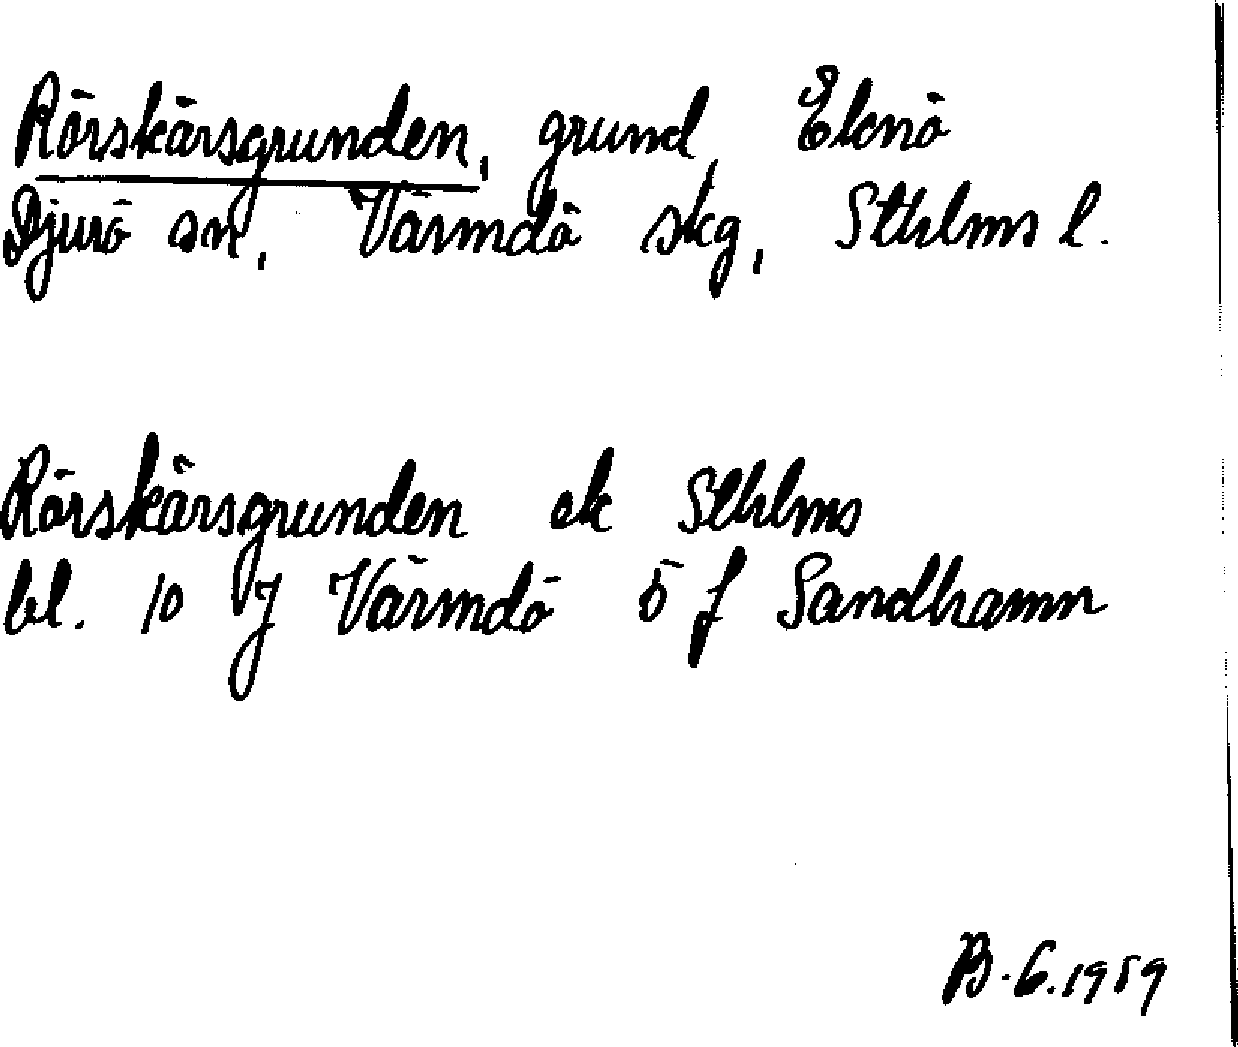 Rörskärsgrunden, grund, Eknö
Djurö sn, Värmdö skg, Sthlms l.
Rörskärsgrunden ek Sthlms
bl. 10 J Värmdö ö f Sandhamn
B.G. 1959